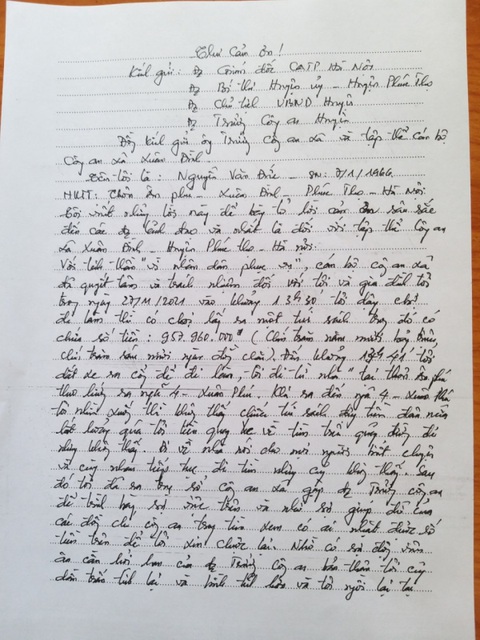 Thư Cảm Ơn!
Kính gửi: Đ/c Giám đốc CATP Hà Nội
Đ/c Bí thư Huyện ủy - Huyện Phúc Thọ
Đ/c Chủ tịch UBND Huyện
Đ/c Trưởng Công an Huyện
Đồng kính gửi ông Trưởng Công an xã và tập thể cán bộ
Công an xã Xuân Đình
Tên tôi là: Nguyễn Văn - SN: 7/1/1966
HKTT: Thôn Ân phú - Xuân Đình - Phúc Thọ - Hà Nội
Tôi viết những lời này để bày tỏ lời cảm ơn sâu sắc
đến các đ/c lãnh đạo và nhất là đối với tập thể Công an
xã Xuân Đình - Huyện Phúc thọ - Hà nội.
Với tinh thần "vì nhân dân phục vụ", cán bộ công an xã
đã quyết tâm và trách nhiệm đối với tôi và gia đình tôi
trong ngày 27/11/2021 vào khoảng 13h30 tôi dậy
đi làm thì có lấy ra một túi sách trong đó có
chứa số tiền: 957.960.000đ (Chín trăm năm mươi bảy triệu,
chín trăm sáu mươi ngàn đồng chẵn). Đến khoảng 13h41 tôi
dắt xe ra cổng để đi hàn, tôi đi từ nhà tại thôn Ân phú
theo hướng ra ngã 4 - Xuân Phú. Khi ra đến ngã 4 - Xuân Phú
tôi nhìn xuống thì không thấy chiếc túi sách đựng tiền đâu nữa
hốt hoảng quá tôi liền quay xe về tìm trên quãng đường đi
nhưng không thấy. Đi về nhà nói cho mọi người biết chuyện
và cùng nhau tiếp tục đi tìm nhưng cũng không thấy. Sau
đó tôi đã ra trụ sở công an xã gặp đ/c Trưởng công an
để trình bày sự việc trên và nhờ sự giúp đỡ của
các đồng chí công an truy tìm xem có ai nhặt được số
tiền trên để tôi xin chuộc lại. Nhờ có sự động viên
ân cần của đ/c Trưởng Công an bản thân tôi cũng
dần trấn tĩnh lại và bình tĩnh hơn và tôi ngồi lại tại